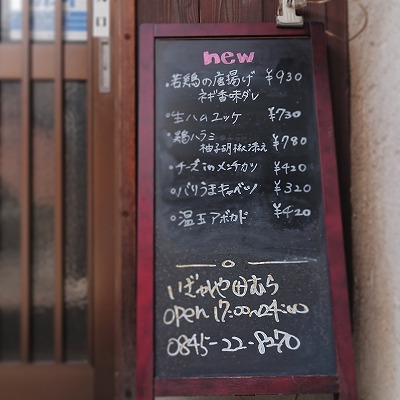 new
・若鶏の唐揚げ ¥930
ネギ香味ダレ
・生ハムユッケ ¥730
・鶏ハラミ
柚子胡椒添え ¥780
・チーズinメンチカツ ¥420
・バリうまキャベツ ¥320
・温玉アボカド ¥420
いざかや田むら
open 17:00~24:00
0845-22-8270